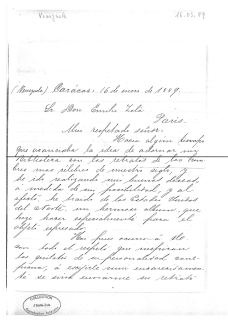 Venezuela
16.01.89
(Venezuela) Caracas: 16 de enero de 1889.
Sr Don Emilio Zola
Paris.
Muy respetado señor:
Hacía algún tiempo
que acariciaba la idea de adornar mi
biblioteca con los retratos de los hom
bres más célebres de nuestro siglo, y
he ido realizando mis buenos deseos,
á medida de mi posibilidad, y al
efecto, he traido de los Estados Unidos
del Norte, un hermoso álbum, que
hice hacer especialmente para el
objeto expresado.
Hoy pues ocurro á Ud
con todo el respeto que inspiran
los quilates de su personalidad
á suplicarle muy encarecidamen
te se sirva enviarme su retrato